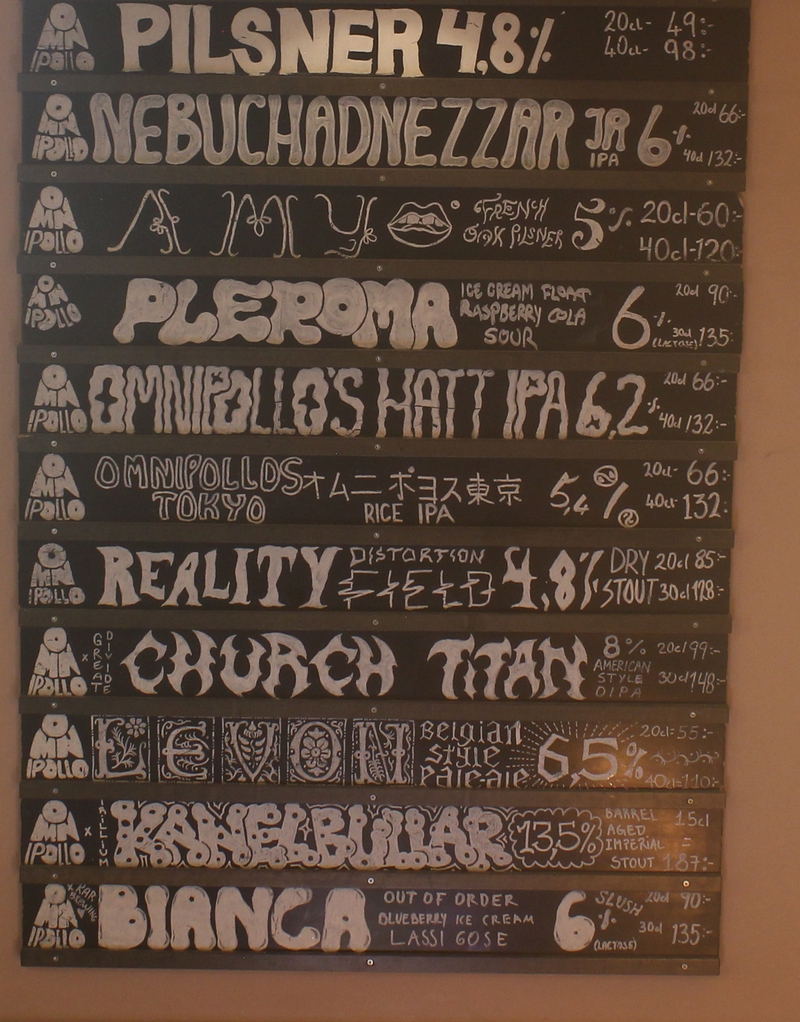 OMNIPOLLO PILSNER 4,8% 20cl- 49:-
40cl- 98:-
OMNIPOLLO NEBUCHADNEZZAR JR IPA 6% 20cl 66:-
40cl 132:-
OMNIPOLLO AMY FRENCH OAK PILSNER 5% 20cl-60:-
40cl-120:-
OMNIPOLLO PLEROMA ICE CREAM FLOAT RASPBERRY COLA SOUR 6% (LACTOSE) 20cl 90:-
30cl 135:-
OMNIPOLLO OMNIPOLLO'S HATT IPA 6,2% 20cl 66:-
40cl 132:-
OMNIPOLLO OMNIPOLLOS TOKYO オムニポヨス東京 RICE IPA 5,4% 20cl- 66:-
40cl- 132:-
OMNIPOLLO REALITY DISTORTION FIELD 4,8% DRY STOUT 20cl 85:-
30cl 128:-
OMNIPOLLO x GREAT DIVIDE CHURCH TITAN 8% AMERICAN STYLE DIPA 20cl 99:-
30cl 148:-
OMNIPOLLO LEVON Belgian style Pale ale 6,5% 20cl=55:-
40cl=110:-
OMNIPOLLO x TRILLIUM KANELBULLAR 13,5% BARREL AGED IMPERIAL STOUT 15cl = 187:-
OMNIPOLLO x KAR BREWING BIANCA OUT OF ORDER BLUEBERRY ICE CREAM LASSI GOSE 6% (LACTOSE) SLUSH 20cl 90:-
30cl 135:-